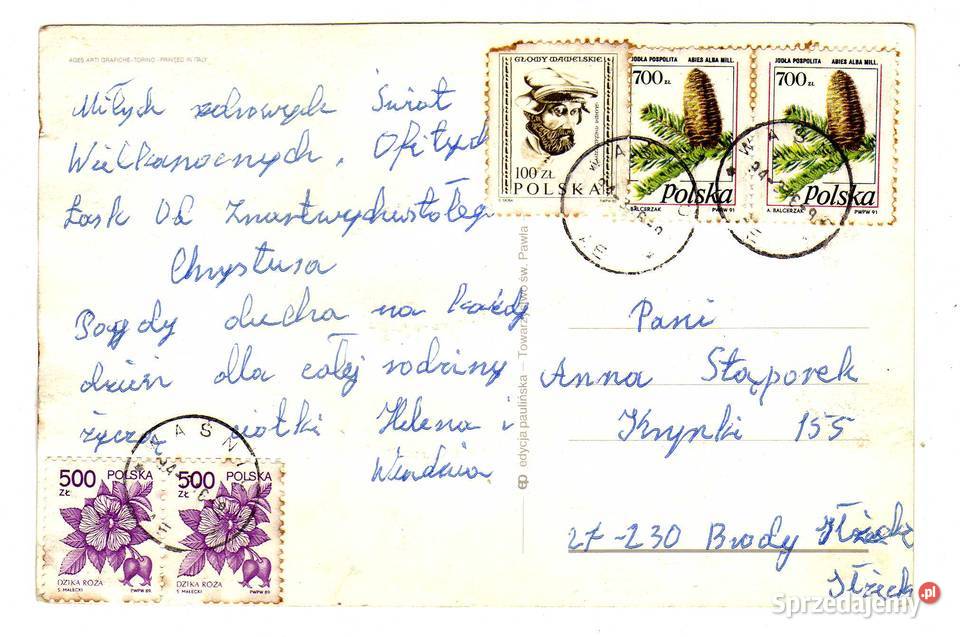 AGES ARTI GRAFICHE - TORINO - PRINTED IN ITALY
Miłych zdrowych Świat
Wielkanocnych. Ofitych
Łask Od Zmartwychwstałego
Chrystusa
Pogody ducha na każdy
dzień dla całej rodziny
życzą ciotki Helena i
Władzia
GŁOWY WAWELSKIE
100 ZŁ
POLSKA
JODŁA POSPOLITA ABIES ALBA MILL.
700 ZŁ
Polska
A. BALCERZAK PWPW 91
JODŁA POSPOLITA ABIES ALBA MILL.
700 ZŁ
Polska
A. BALCERZAK PWPW 91
edycja paulińska — Towarzystwo św. Pawła
Pani
Anna Stąporek
Krynki 155
27-230 Brody
500 ZŁ POLSKA
DZIKA RÓŻA
S. MAŁECKI PWPW 89
500 ZŁ POLSKA
DZIKA RÓŻA
S. MAŁECKI PWPW 89
Sprzedajemy.pl